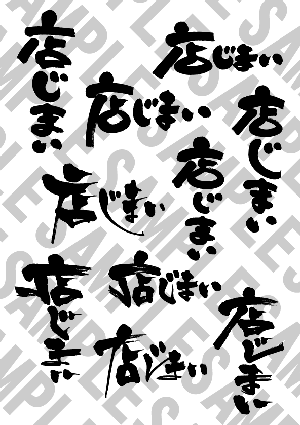 店じまい
店じまい
店じまい
店じまい
店じまい
店じまい
店じまい
店じまい
店じまい
店じまい
SAMPLE SAMPLE SAMPLE